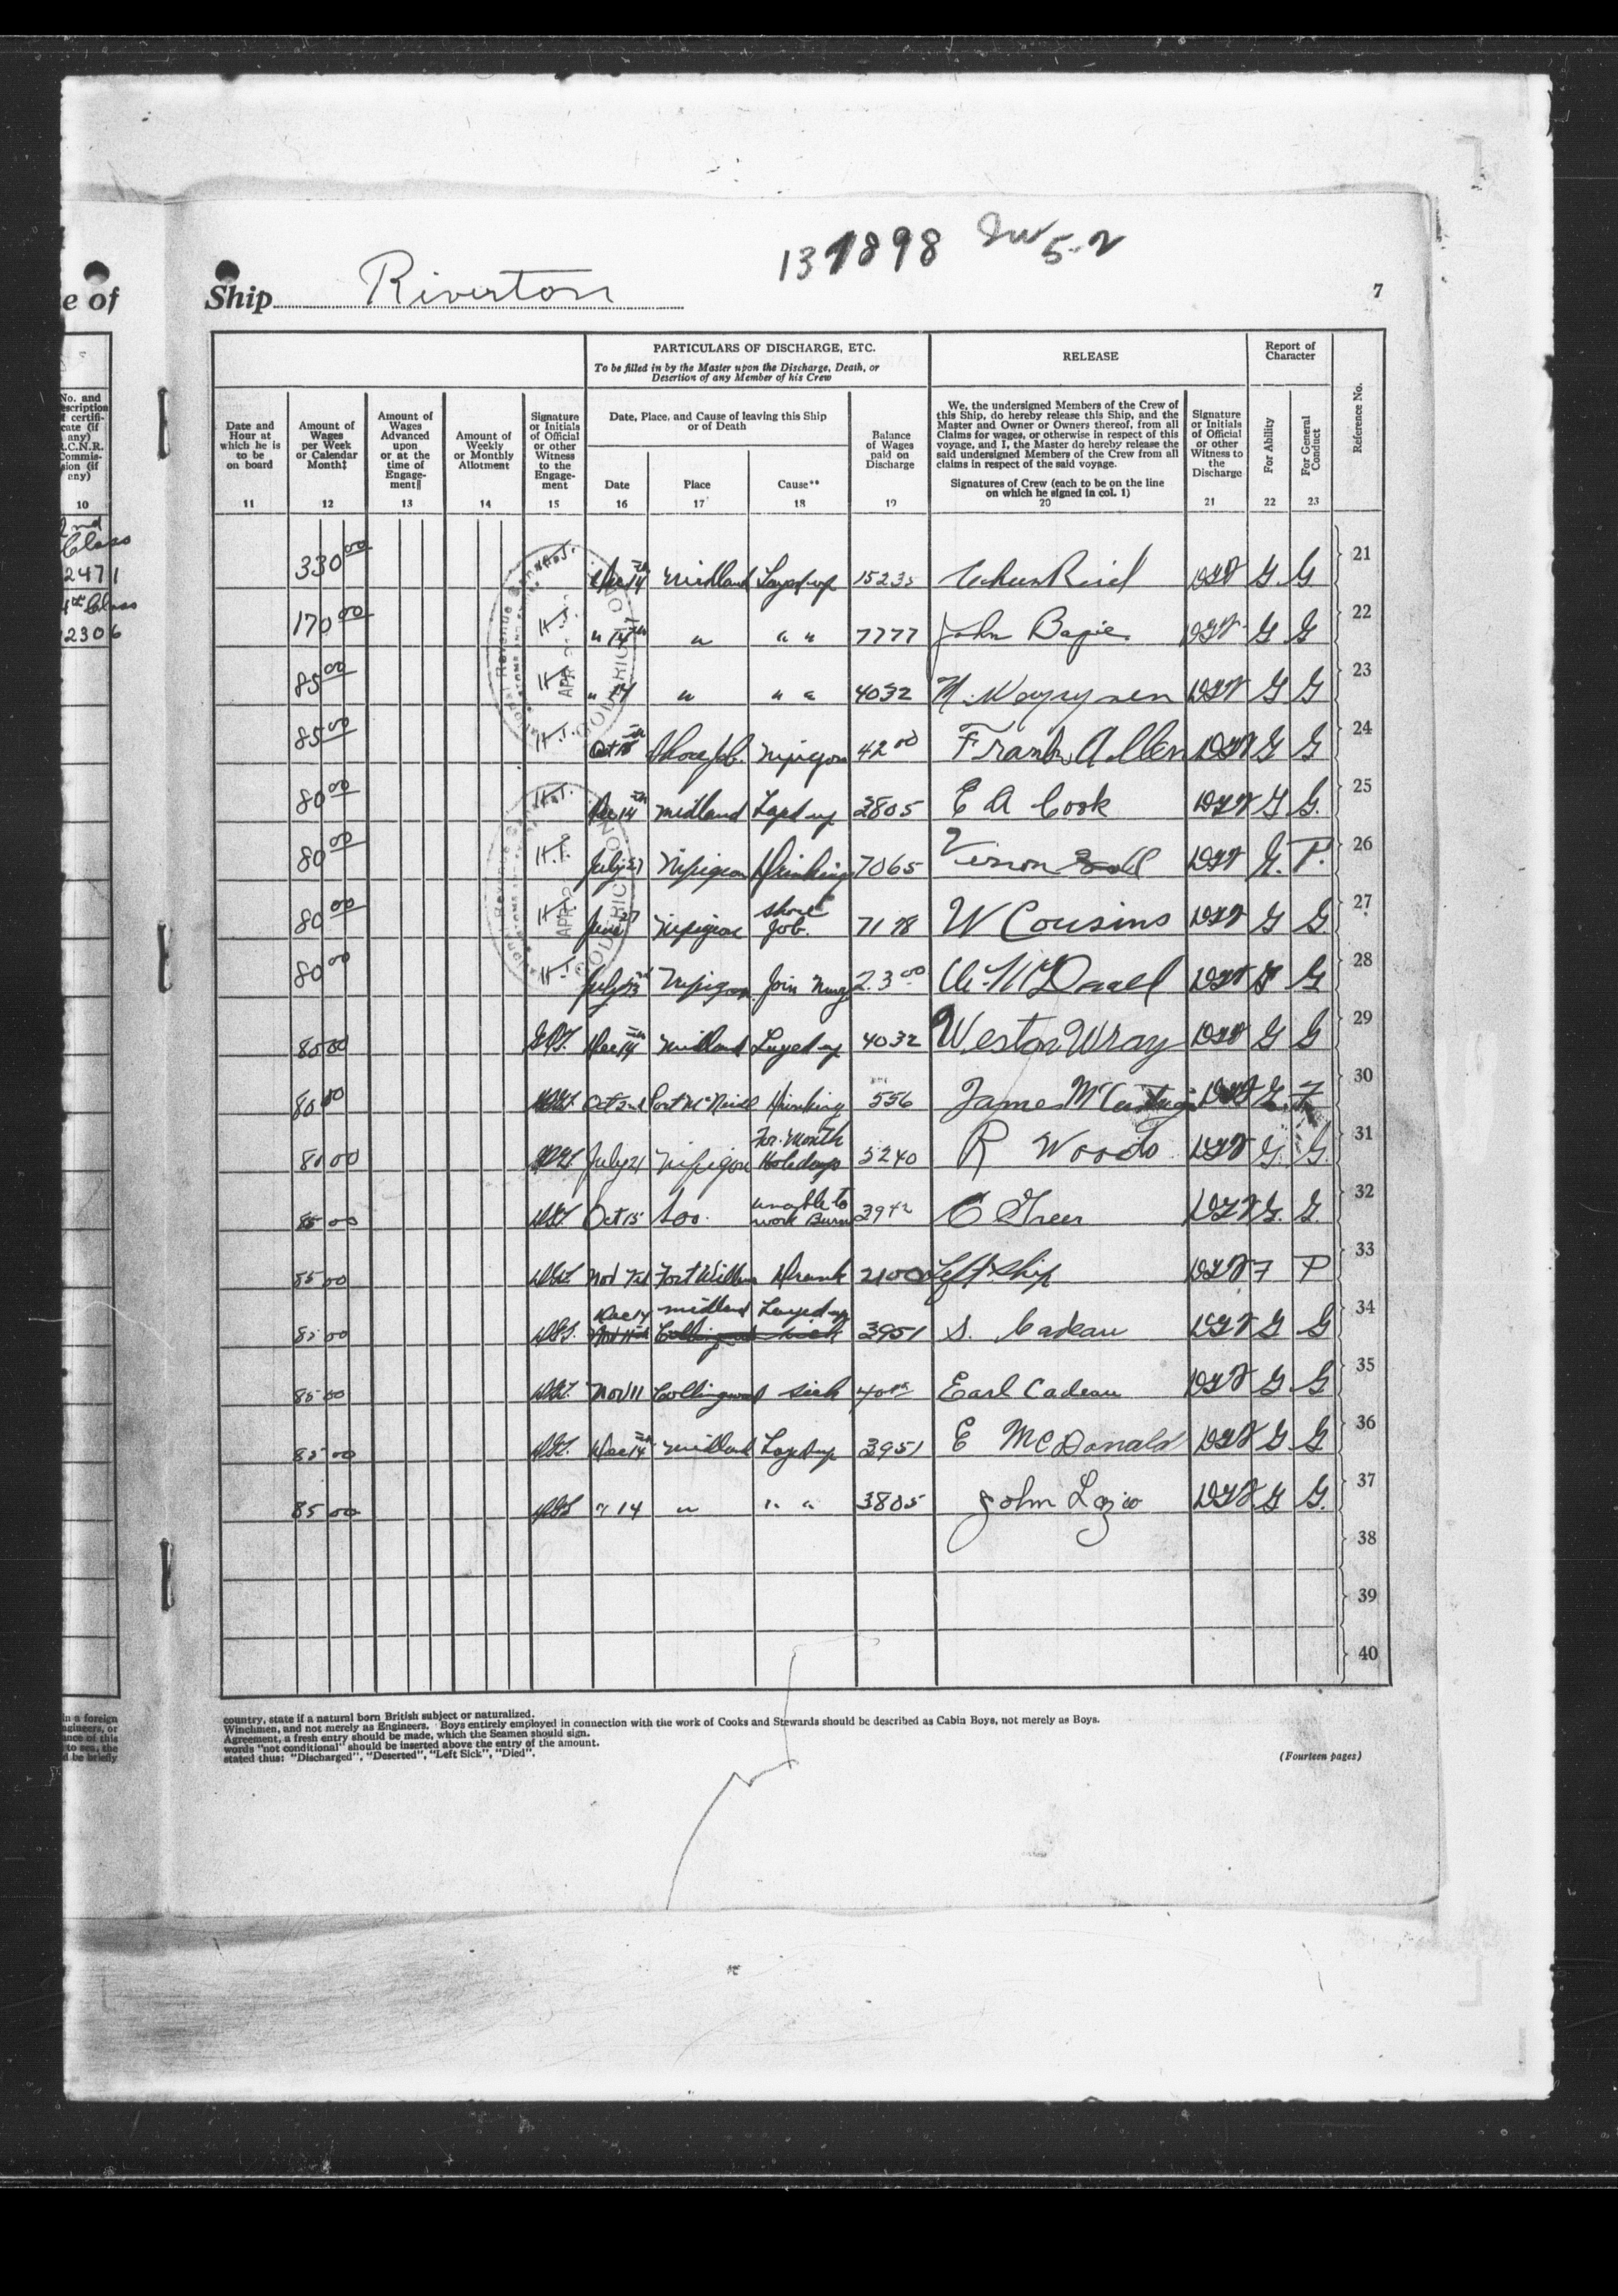 131898 5-2
e of
Ship Riverton
7
PARTICULARS OF DISCHARGE, ETC.
To be filled in by the Master upon the Discharge, Death, or
Desertion of any Member of his Crew
RELEASE
Report of
Character
Reference No.
No. and
escription
f certifi-
cate (if
any)
R.C.N.R.
Commis-
sion (if
any)
10
Date and
Hour at
which he is
to be
on board
11
Amount of
Wages
per Week
or Calendar
Month‡
12
Amount of
Wages
Advanced
upon
or at the
time of
Engage-
ment||
13
Amount of
Weekly
or Monthly
Allotment
14
Signature
or Initials
of Official
or other
Witness
to the
Engage-
ment
15
Date, Place, and Cause of leaving this Ship
or of Death
Date
16
Place
17
Cause**
18
Balance
of Wages
paid on
Discharge
19
We, the undersigned Members of the Crew of
this Ship, do hereby release this Ship, and the
Master and Owner or Owners thereof, from all
Claims for wages, or otherwise in respect of this
voyage, and I, the Master do hereby release the
said undersigned Members of the Crew from all
claims in respect of the said voyage.
Signatures of Crew (each to be on the line
on which he signed in col. 1)
20
Signature
or Initials
of Official
or other
Witness to
the
Discharge
21
For Ability
22
For General
Conduct
23
2nd
Class
2471
4th Class
12306
330 00 Dec 14th Midland Layed up 15235 Reid G G 21
170 00 " 14th " " " 7777 John G G 22
85 00 " 14 " " " 4032 G G 23
85 00 Oct 15th Shore Job. Nipigon 42 00 Frank Allen G G 24
80 00 Dec 14th Midland Layed up 3805 E A Cook G G. 25
80 00 July 27 Nipigon Drinking 7065 Vernon G. P. 26
80 00 June 27 Nipigon Shore Job. 7178 W Cousins G G 27
80 00 July 23rd Nipigon Join Navy 23 00 G 28
80 00 Dec 14th Midland Layed up 4032 Weston Wray G G 29
80 00 Oct 2nd Port McNicoll Drinking 556 James G. F 30
80 00 July 21 Nipigon For Month Holidays 5240 R Woods G. G. 31
85 00 Oct 15 Soo. unable to work Burn 3942 C Greer G. G. 32
85 00 Nov Fort William Drunk 2100 Left Ship F P 33
85 00 Dec 14 Midland Layed up 3951 S. Cadeau G G 34
Collingwood sick
85 00 Nov 11 Collingwood sick 40 Earl Cadeau G. G 35
85 00 Dec 14th Midland Layed up 3951 E McDonald G G 36
85 00 " 14 " " " 3805 John G G. 37
38
39
40
in a foreign
ngineers, or
ance of this
to sea, the
d be briefly
country, state if a natural born British subject or naturalized.
Winchmen, and not merely as Engineers. Boys entirely employed in connection with the work of Cooks and Stewards should be described as Cabin Boys, not merely as Boys.
Agreement, a fresh entry should be made, which the Seamen should sign.
words "not conditional" should be inserted above the entry of the amount.
stated thus: "Discharged", "Deserted", "Left Sick", "Died".
(Fourteen pages)